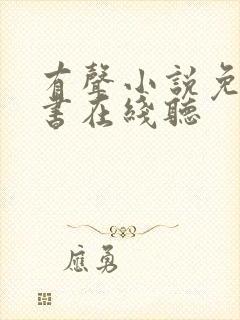 有聲小說免
書在綫聽
應勇